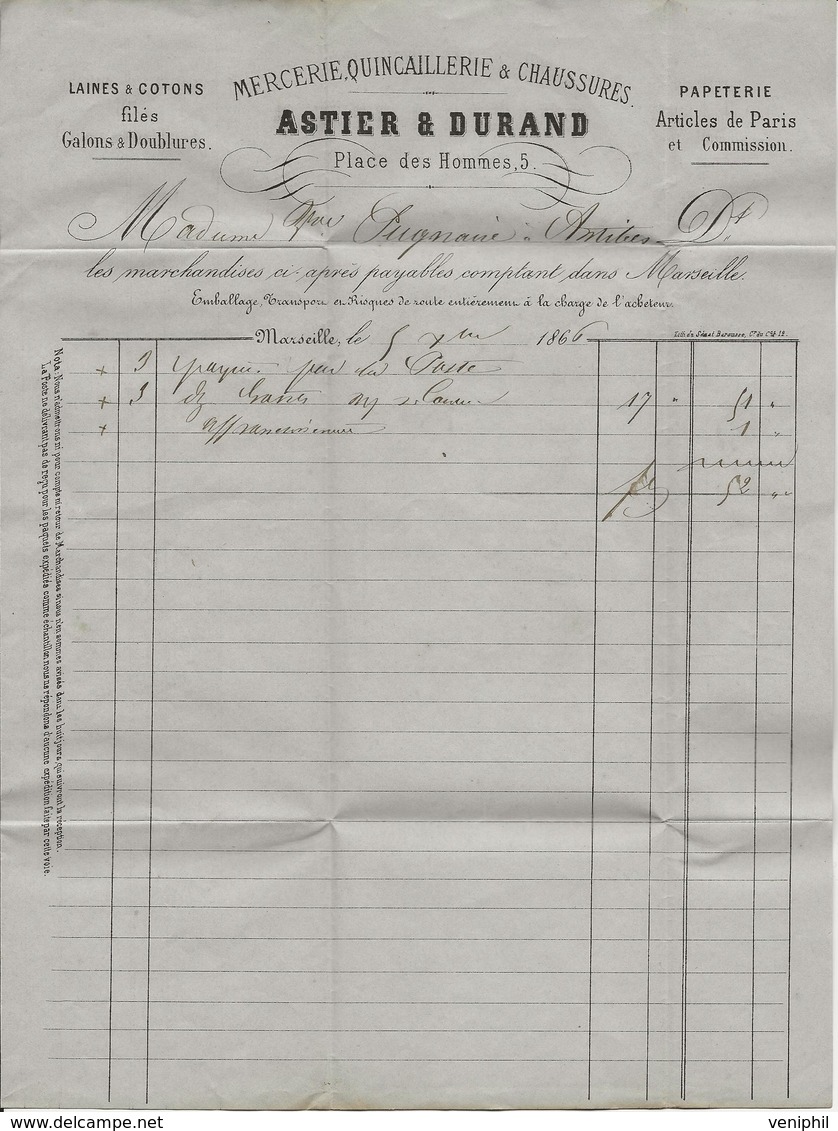 MERCERIE, QUINCAILLERIE & CHAUSSURES.
LAINES & COTONS
filés
Galons & Doublures.
ASTIER & DURAND
Place des Hommes, 5.
PAPETERIE
Articles de Paris
et Commission.
Madame Pugnaire à Antibes Dt
les marchandises ci-après payables comptant dans Marseille.
Emballage, Transport et Risques de route entièrement à la charge de l'acheteur.
Marseille, le 5 Xbre 1866
+ 3 par la Poste
+ 3 dz Gants 17 " 51 "
+ affranchissement 1 "
52 "
Nota: Nous n'admettrons ni pour compte ni retour de Marchandises si nous n'en sommes avisés dans les huit jours, qui suivront la réception.
La Poste ne délivrant pas de reçu pour les paquets expédiés comme échantillon, nous ne répondons d'aucune expédition faite par cette voie.
veniphil